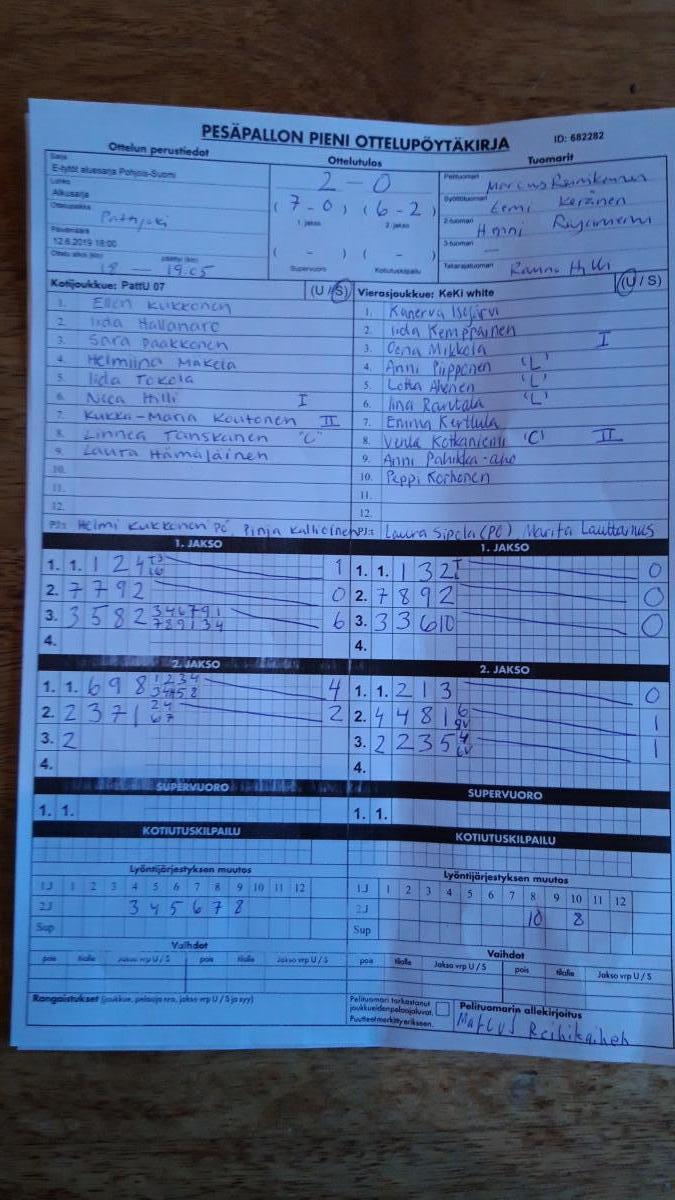 PESÄPALLON PIENI OTTELUPÖYTÄKIRJA
ID: 682282
Ottelun perustiedot
Ottelutulos
Tuomarit
Sarja
E-tytöt aluesarja Pohjois-Suomi
Lohko
Alkusarja
Ottelupaikka
Pattijoki
Päivämäärä
12.6.2019 18:00
18 - 19.05
2 - 0
(7 - 0) (6 - 2)
1. jakso 2. jakso
( - ) ( - )
Supervuoro Kotiutuskilpailu
Pelituomari
Marcus
Syöttötuomari
Eemi Keränen
2-tuomari
3-tuomari
Takarajatuomari
Hilli
Kotijoukkue: PattU 07 (U / S)
1. Ellen Kukkonen
2. Iida
3. Sara Paakkonen
4. Helmiina Makela
5. Iida Tokola
6. Neea Hilli I
7. Kukka-Maria Koutonen II
8. Linnea Tanskanen "C"
9. Laura Hämäläinen
10.
11.
12.
PJ:t Helmi Kukkonen PÖ, Pinja
Vierasjoukkue: KeKi white (U / S)
1. Kanerva
2. Iida Kemppainen
3. Oona Mikkola I
4. Anni Piipponen 'L'
5. Lotta Ahonen 'L'
6. Iina Rantala 'L'
7. Emma Kerttula
8. Venla Kotkaniemi 'C' II
9. Anni Pahikka-aho
10. Peppi Korhonen
11.
12.
PJ:t Laura Sipola (PÖ) Marita
1. JAKSO
1. 1. 1 2 4 1
2. 7 7 9 2 0
3. 3 5 8 2 346791 789134 6
4.
1. JAKSO
1. 1. 1 3 2 0
2. 7 8 9 2 0
3. 3 3 6 10 0
4.
2. JAKSO
1. 1. 6 9 8 1234 4
2. 2 3 7 1 24 67 2
3. 2
4.
2. JAKSO
1. 1. 2 1 3 0
2. 4 4 8 1 1
3. 2 2 3 5 1
4.
SUPERVUORO
1. 1.
SUPERVUORO
1. 1.
KOTIUTUSKILPAILU
KOTIUTUSKILPAILU
Lyöntijärjestyksen muutos
1J 1 2 3 4 5 6 7 8 9 10 11 12
2J 3 4 5 6 7 8
Sup
Lyöntijärjestyksen muutos
1J 1 2 3 4 5 6 7 8 9 10 11 12
2J 10 8
Sup
Vaihdot
pois tilalle Jakso vrp U / S pois tilalle Jakso vrp U / S
Vaihdot
pois tilalle Jakso vrp U / S pois tilalle Jakso vrp U / S
Rangaistukset (joukkue, pelaaja nro, jakso vrp U / S ja syy)
Pelituomari tarkastanut
joukkueiden pelaajaluvat.
Puutteet merkitty erikseen.
Pelituomarin allekirjoitus
Marcus